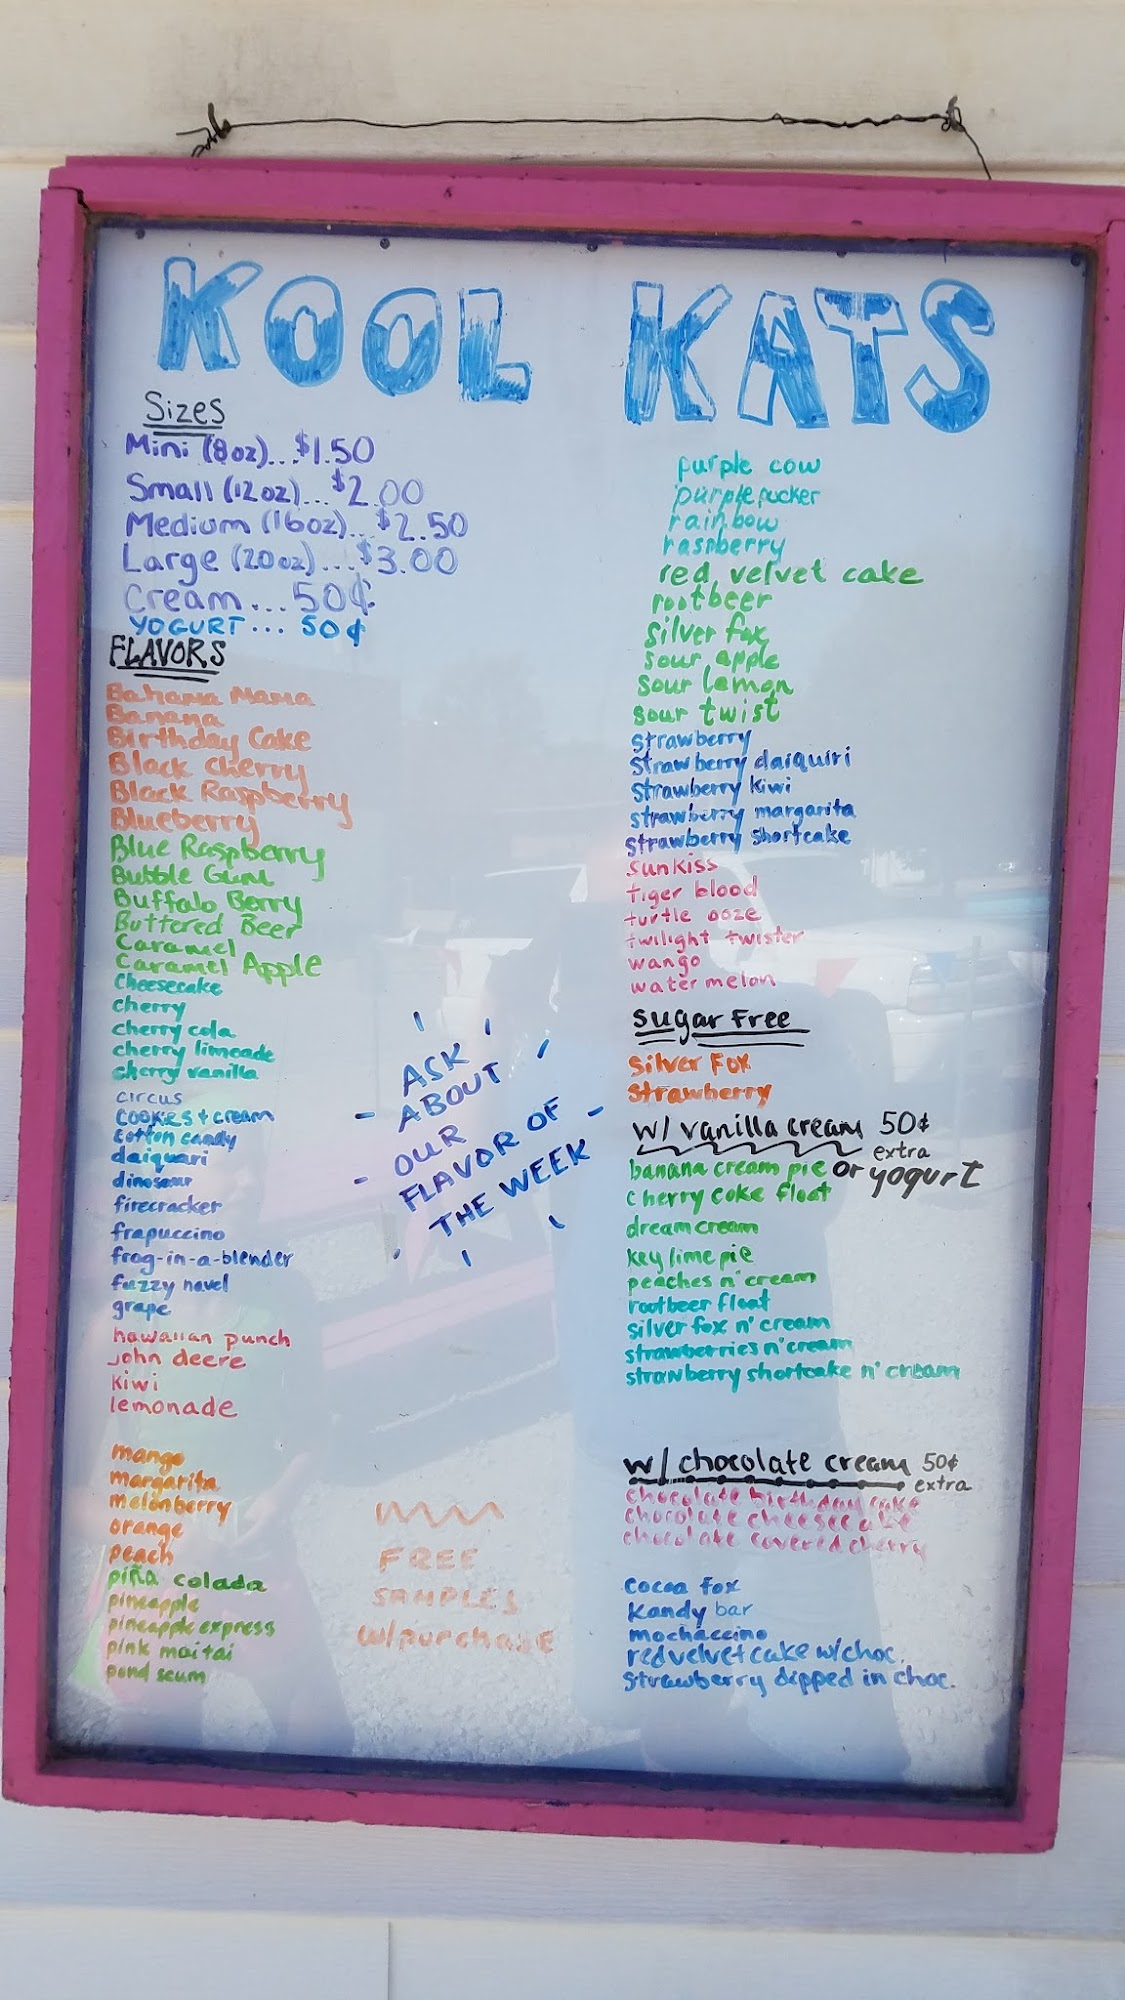 KOOL KATS
Sizes
Mini (8oz)...$1.50
Small (12oz)...$2.00
Medium (16oz)...$2.50
Large (20oz)...$3.00
Cream...50¢
YOGURT... 50¢
FLAVORS
Bahama Mama
Banana
Birthday Cake
Black Cherry
Black Raspberry
Blueberry
Blue Raspberry
Bubble Gum
Buffalo Berry
Buttered Beer
Caramel
Caramel Apple
Cheesecake
cherry
cherry cola
cherry limeade
cherry vanilla
circus
cookies + cream
cotton candy
daiquari
dinosaur
firecracker
frapuccino
frog-in-a-blender
fuzzy navel
grape
hawaiian punch
john deere
kiwi
lemonade
mango
margarita
melonberry
orange
peach
piña colada
pineapple
pineapple express
pink mai tai
pond scum
ASK
ABOUT
OUR
FLAVOR OF
THE WEEK
FREE
SAMPLES
w/purchase
purple cow
purple pucker
rainbow
raspberry
red velvet cake
rootbeer
silver fox
sour apple
sour lemon
sour twist
strawberry
strawberry daiquiri
strawberry kiwi
strawberry margarita
strawberry shortcake
sunkiss
tiger blood
turtle ooze
twilight twister
wango
watermelon
Sugar Free
Silver Fox
Strawberry
w/ vanilla cream 50¢
extra
banana cream pie or yogurt
cherry coke float
dream cream
key lime pie
peaches n' cream
rootbeer float
silver fox n' cream
strawberries n' cream
strawberry shortcake n' cream
w/ chocolate cream 50¢
extra
chocolate birthday cake
chocolate cheesecake
chocolate covered cherry
cocoa fox
kandy bar
mochaccino
red velvet cake w/choc.
strawberry dipped in choc.